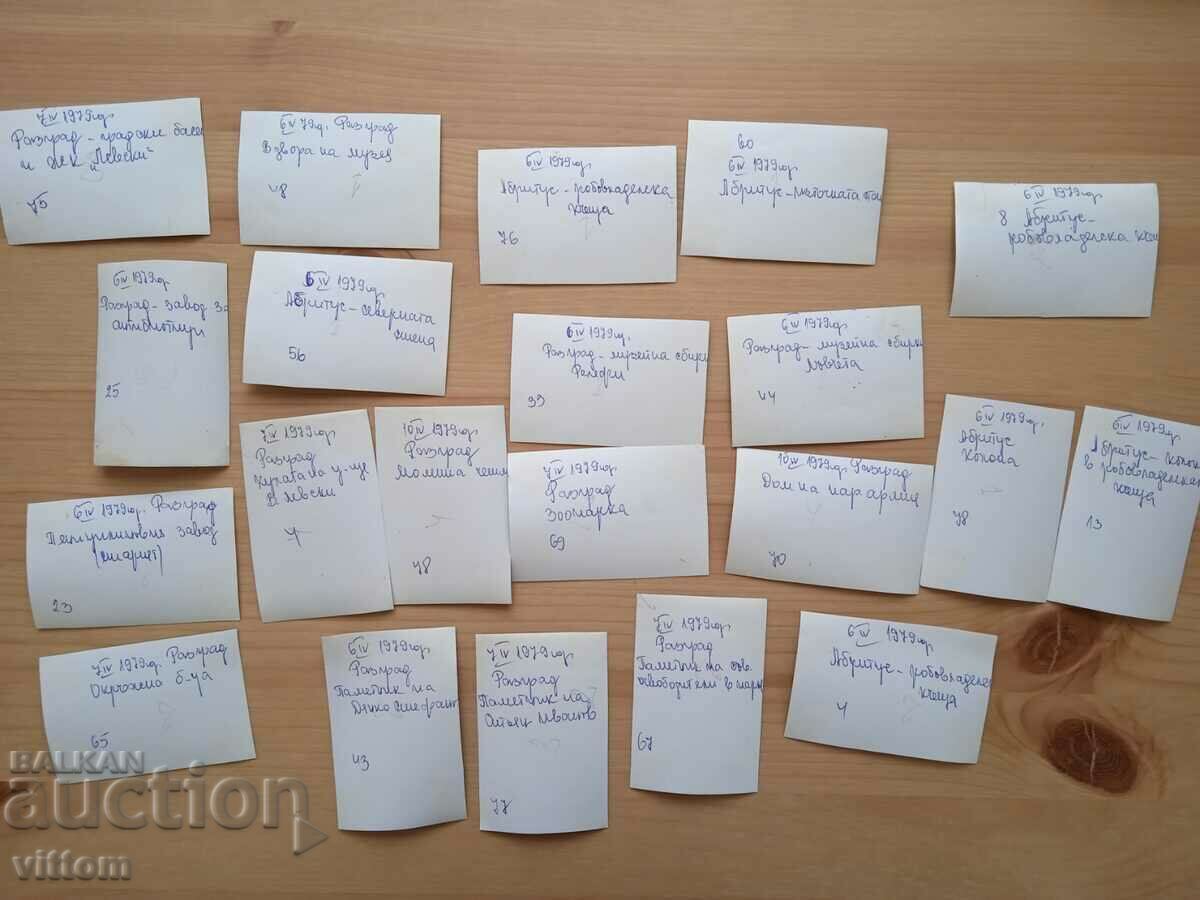 7 IV 1979 год.
Разград - градски басе
и ЖК "Левски"
75
6 IV 79 г. Разград
В двора на музея
48
6 IV 1979 год.
Абритус - робовладелска
къща
76
60
6 IV 1979 год.
Абритус - източната
6 IV 1979 год.
8 Абритус -
робовладелска къщ
6 IV 1979 год.
Разград - завод за
антибиотици
25
6 IV 1979 год.
Абритус - северната
стена
56
6 IV 1979 год.
Разград - музейна сбирка
Релефи
39
6 IV 1979 год.
Разград - музейна сбирка
Лъвчета
44
7 IV 1979 год.
Разград
у-ще
В. Левски
4
10 IV 1979 год.
Разград
Момина чешм
78
7 IV 1979 год.
Разград
Зоопарка
69
10 IV 1979 год. Разград
Дом на
70
6 IV 1979 год.
Абритус
Колона
78
6 IV 1979 г.
Абритус - коло
в робовладелска
къща
13
6 IV 1979 год. Разград
завод
23
7 IV 1979 год. Разград
Окръжна б-ца
65
6 IV 1979 год.
Разград
Паметник на
43
7 IV 1979 год.
Разград
Паметник на
77
7 IV 1979 год.
Разград
Паметник на съв.
освободители в парк
67
6 IV 1979 год.
Абритус - робовладелс
къща
4
BALKAN
auction
vittom